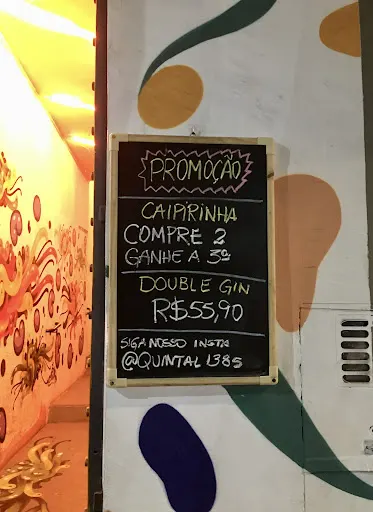 PROMOÇÃO
CAIPIRINHA
COMPRE 2
GANHE A 3ª
DOUBLE GIN
R$55,90
SIGA NOSSO INSTA
@QUINTAL1385